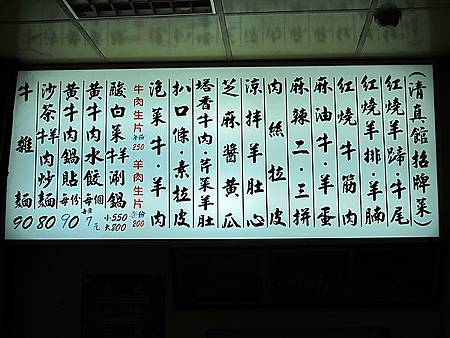 (清真館招牌菜)
紅燒羊蹄·牛尾
紅燒羊排·羊腩
紅燒牛筋肉
麻油牛·羊蛋
麻辣二·三拼
肉絲拉皮
涼拌羊肚·心
芝麻醬黃瓜
塔香牛肉·芹菜羊肚
扒口條·素拉皮
泡菜牛·羊肉
牛肉生片每份250 羊肉生片每份200
酸白菜牛羊涮鍋小550大800
黃牛肉水餃每個7元
黃牛肉鍋貼每份90
沙茶牛羊肉炒麵80
牛雜麵90